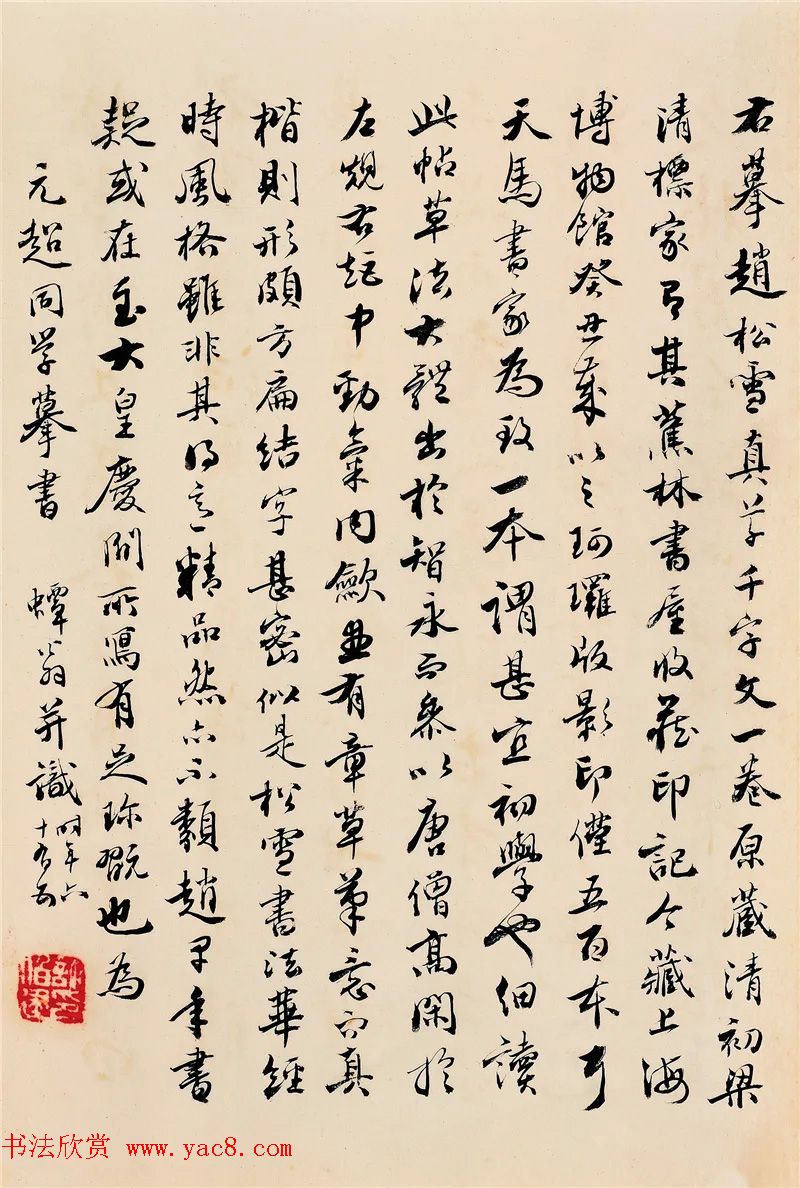 右摹趙松雪真草千字文一卷原藏清初梁
清標家有其蕉林書屋收藏印記今藏上海
博物館癸丑歲以之珂瓏版影印僅五百本
天馬書家為致一本謂甚宜初學也細讀
此帖草法大體出於智永而參以唐僧高閑於
左規右矩中勁氣內斂並有章草筆意而真
楷則形頗方扁結字甚密似是松雪書法華經
時風格雖非其得意精品然亦不類趙早年書
疑或在至大皇慶間所寫有足珍翫也為
元超同学摹書
蟫翁并識時年六
十有五
书法欣赏 www.yac8.com